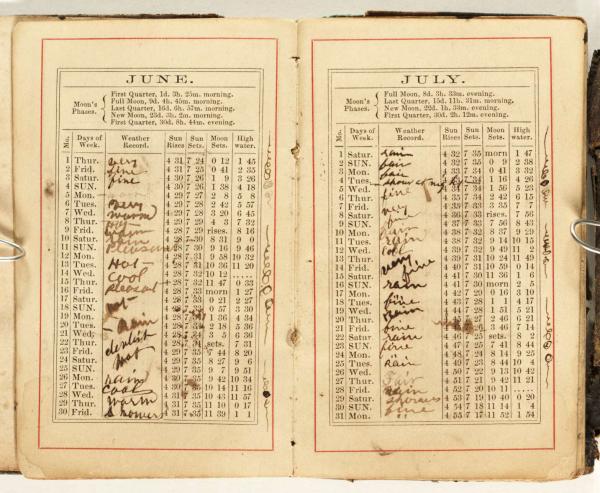 JUNE.
Moon's Phases.
First Quarter, 1d. 3h. 25m. morning.
Full Moon, 9d. 4h. 45m. morning.
Last Quarter, 16d. 6h. 57m. morning.
New Moon, 23d. 3h. 2m. morning.
First Quarter, 30d. 8h. 44m. evening.
Mo. Days of Week. Weather Record. Sun Rises Sun Sets. Moon Sets. High water.
1 Thur. very 4 31 7 24 0 12 1 45
2 Fri. fine 4 31 7 25 0 41 2 35
3 Satur. fine 4 30 7 26 1 9 3 26
4 SUN. 4 30 7 26 1 38 4 18
5 Mon. 4 29 7 27 2 8 5 8
6 Tues. very 4 29 7 27 2 42 5 57
7 Wed. warm 4 29 7 28 3 20 6 45
8 Thur. 4 29 7 28 4 3 7 32
9 Fri. 4 28 7 29 rises. 8 16
10 Satur. rain 4 28 7 8 31 9 0
11 SUN. pleasant 4 28 7 30 9 16 9 46
12 Mon. 4 28 7 31 9 58 10 32
13 Tues. Hot 4 28 7 31 10 36 11 20
14 Wed. Cool 4 28 7 32 10 12
15 Thur. 4 28 7 32 11 47 0 33
16 Fri. 4 28 7 33 morn 1 27
17 Satur. Hot 4 28 7 33 0 21 2 27
18 SUN. 4 28 7 33 0 57 3 30
19 Mon. 4 28 7 1 36 4 34
20 Tues. Rain 4 28 7 2 18 5 36
21 Wed. 4 28 7 34 3 5 6 36
22 Thur. 7 34 sets. 7 31
23 Fri. 4 29 7 35 7 44 8 20
24 Satur. Hot 4 29 7 35 8 27 9 6
25 SUN. 4 29 7 35 9 7 9 51
26 Mon. 4 30 7 9 42 10 34
27 Tues. rain 4 30 7 35 10 14 11 16
28 Wed. Cool 4 30 7 35 10 43 11 57
29 Thur. warm 4 31 7 35 11 10 0 17
30 Fri. Showers 4 31 7 35 11 39 1 1
JULY.
Moon's Phases.
Full Moon, 8d. 3h. 33m. evening.
Last Quarter, 15d. 11h. 31m. morning.
New Moon, 22d. 1h. 53m. evening.
First Quarter, 30d. 2h. 12m. evening.
Mo. Days of Week. Weather Record. Sun Rises Sun Sets. Moon Sets. High water.
1 Satur. rain 4 32 7 35 morn 1 47
2 SUN. fair 4 32 7 35 0 9 2 38
3 Mon. fair 4 33 7 34 0 41 3 32
4 Tues. 4 33 7 34 1 16 4 26
5 Wed. 4 34 7 34 1 56 5 23
6 Thur. fine 4 35 7 34 2 42 6 15
7 Fri. 4 35 7 33 3 35 7 7
8 Satur. 4 36 7 33 rises. 7 56
9 SUN. 4 37 7 33 7 56 8 43
10 Mon. 4 37 7 32 8 37 9 29
11 Tues. rain 4 38 7 32 9 14 10 15
12 Wed. 4 39 7 32 9 49 11 2
13 Thur. very 4 39 7 31 10 24 11 49
14 Fri. fine 4 40 7 31 10 59 0 14
15 Satur. 4 41 7 30 11 36 1 6
16 SUN. rain 4 41 7 30 morn 2 5
17 Mon. 4 42 7 29 0 16 3 10
18 Tues. fine 4 43 7 28 1 1 4 17
19 Wed. rain 4 44 7 28 1 51 5 21
20 Thur. 4 45 7 27 2 46 6 21
21 Fri. fine 4 7 26 3 46 7 14
22 Satur. 4 46 7 25 sets. 8 2
23 SUN. fine 4 47 7 25 7 41 8 44
24 Mon. 4 48 7 24 8 14 9 25
25 Tues. rain 4 49 7 23 8 44 10 4
26 Wed. 4 50 7 22 9 13 10 42
27 Thur. Fair 4 51 7 21 9 42 11 21
28 Fri. rain 4 52 7 20 10 11
29 Satur. showers 4 53 7 19 10 40 0 20
30 SUN. fine 4 54 7 18 11 14 1 4
31 Mon. " 4 55 7 17 11 52 1 54